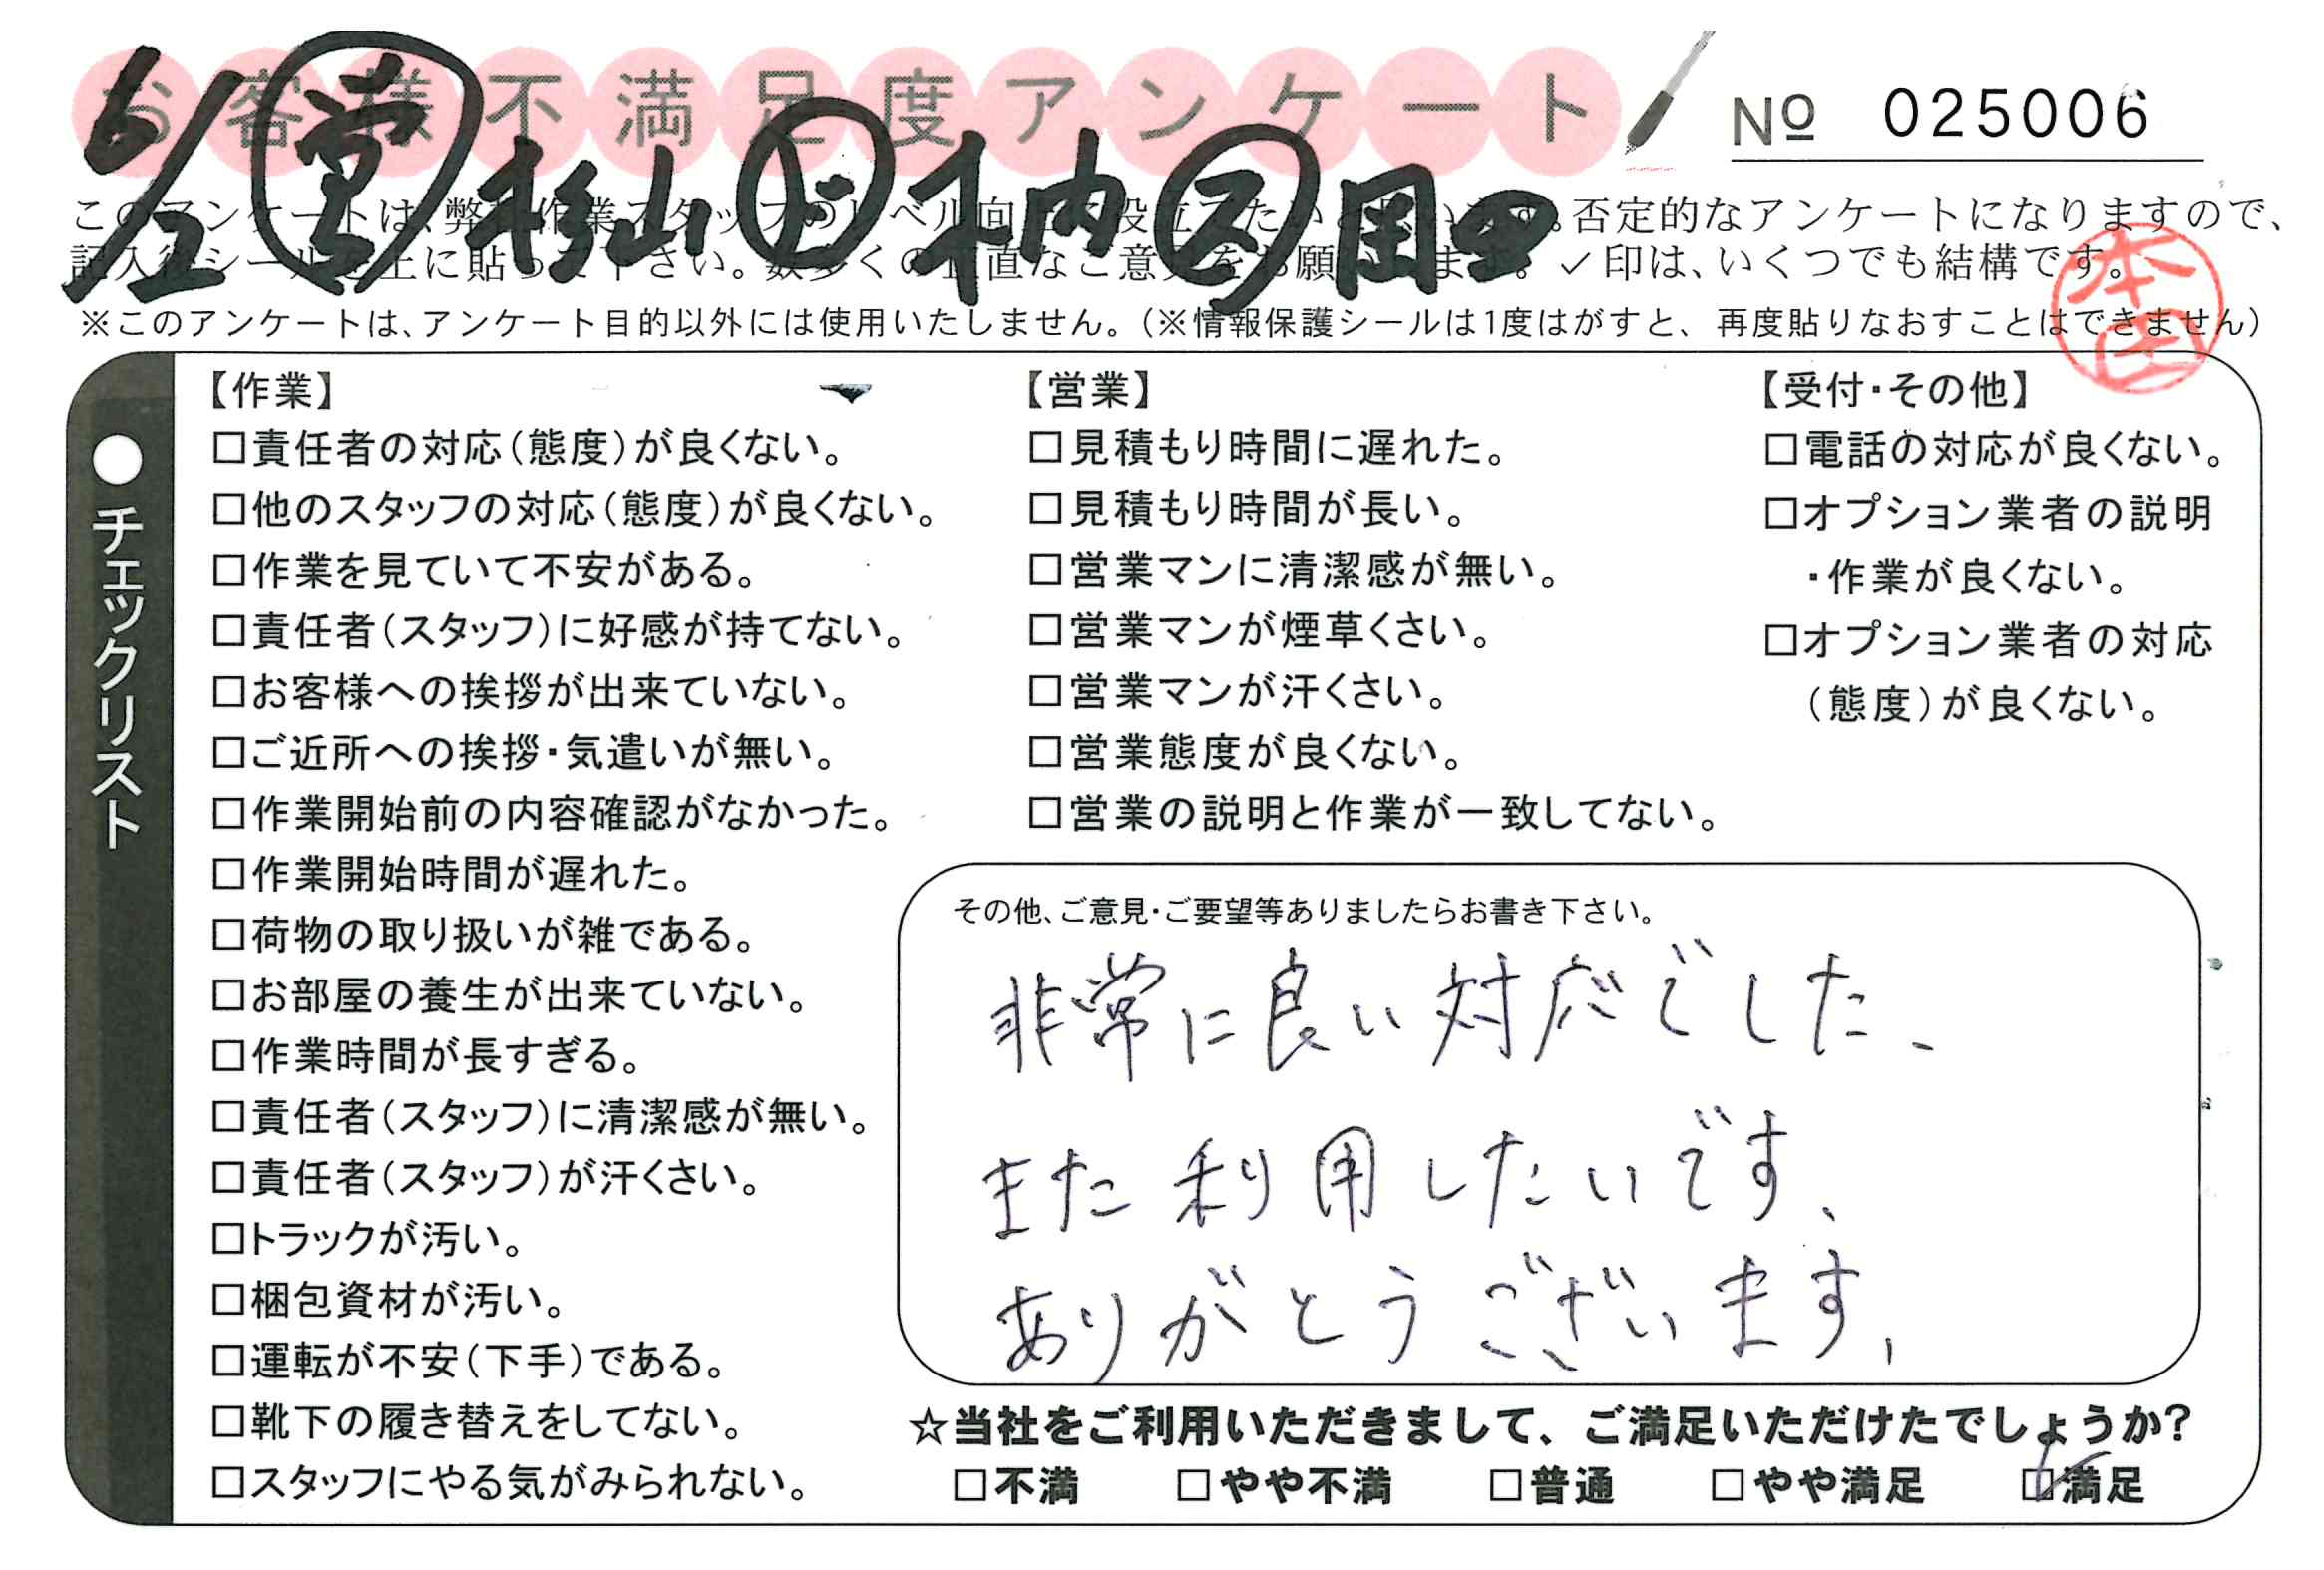 お客様不満足度アンケート
№ 025006
6/2 営 杉山 ド 木内 ス 岡田
このアンケートは、弊 作業スタッフのレベル向 役立 たい 。否定的なアンケートになりますので、
記入後シール 上に貼って下さい。数多くの正直なご意見をお願い ます。✓印は、いくつでも結構です。
本田
※このアンケートは、アンケート目的以外には使用いたしません。(※情報保護シールは1度はがすと、再度貼りなおすことはできません)
●チェックリスト
【作業】
□責任者の対応(態度)が良くない。
□他のスタッフの対応(態度)が良くない。
□作業を見ていて不安がある。
□責任者(スタッフ)に好感が持てない。
□お客様への挨拶が出来ていない。
□ご近所への挨拶・気遣いが無い。
□作業開始前の内容確認がなかった。
□作業開始時間が遅れた。
□荷物の取り扱いが雑である。
□お部屋の養生が出来ていない。
□作業時間が長すぎる。
□責任者(スタッフ)に清潔感が無い。
□責任者(スタッフ)が汗くさい。
□トラックが汚い。
□梱包資材が汚い。
□運転が不安(下手)である。
□靴下の履き替えをしてない。
□スタッフにやる気がみられない。
【営業】
□見積もり時間に遅れた。
□見積もり時間が長い。
□営業マンに清潔感が無い。
□営業マンが煙草くさい。
□営業マンが汗くさい。
□営業態度が良くない。
□営業の説明と作業が一致してない。
【受付・その他】
□電話の対応が良くない。
□オプション業者の説明
・作業が良くない。
□オプション業者の対応
(態度)が良くない。
その他、ご意見・ご要望等ありましたらお書き下さい。
非常に良い対応でした、
また利用したいです、
ありがとうございます、
☆当社をご利用いただきまして、ご満足いただけたでしょうか?
□不満 □やや不満 □普通 □やや満足 ☑満足